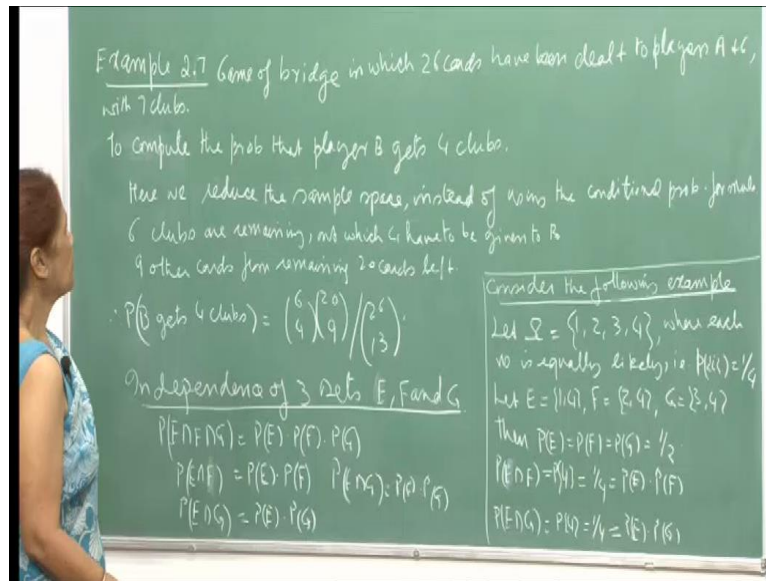 Example 2.7 Game of bridge in which 26 cards have been dealt to players A & C,
with 7 clubs.
To compute the prob that player B gets 4 clubs.
Here we reduce the sample space, instead of using the conditional prob. formula
6 clubs are remaining, out which 4 have to be given to B
9 other cards from remaining 20 cards left.
∴ P(B gets 4 clubs) = (6 4)(20 9)/(26 13).
Independence of 3 Sets E, F and G
P(E∩F∩G) = P(E)·P(F)·P(G)
P(E∩F) = P(E)·P(F) P(E∩G) = P(E)·P(G)
P(E∩G) = P(E)·P(G)
Consider the following example
Let Ω = {1, 2, 3, 4}, where each
no is equally likely, i.e. P({i}) = 1/4
Let E = {1,4}, F = {2,4}, G = {3,4}
then P(E) = P(F) = P(G) = 1/2
P(E∩F) = P(4) = 1/4 = P(E)·P(F)
P(E∩G) = P(4) = 1/4 = P(E)·P(G)